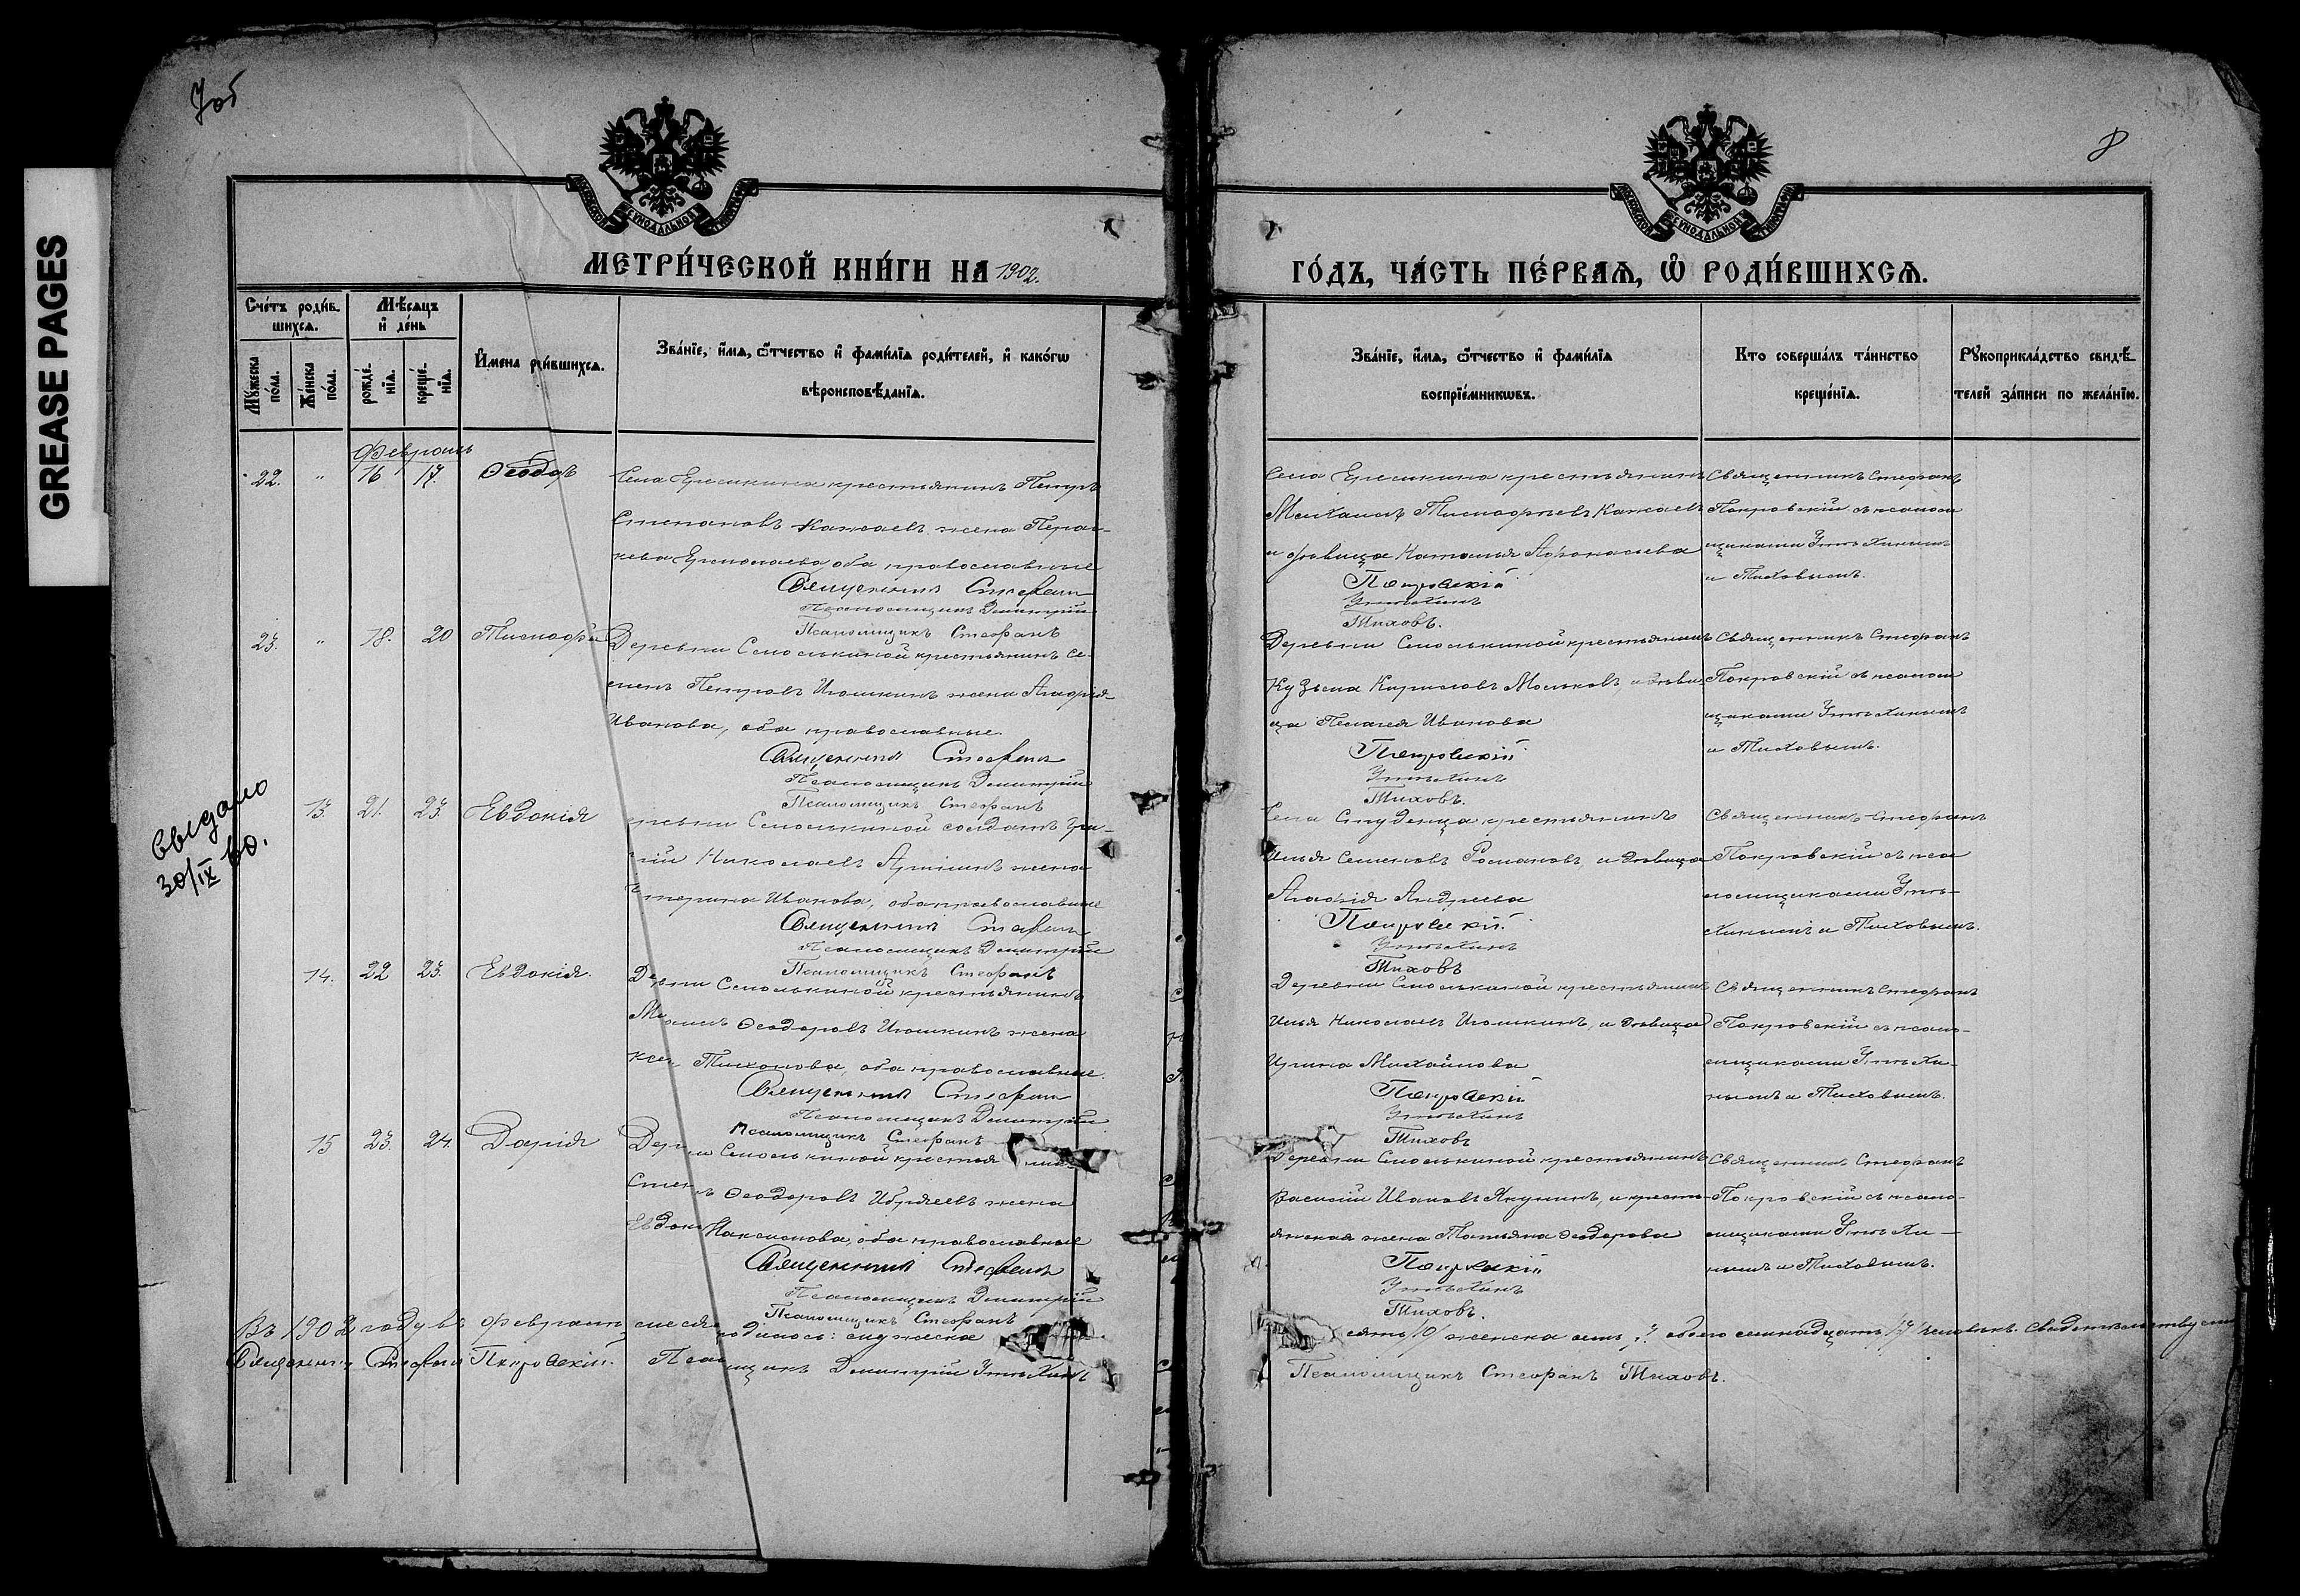 7об
8
GREASE PAGES
МОСКОВСКОЙ СѴНОДАЛЬНОЙ ТИПОГРАФІИ
МЕТРИ́ЧЕСКОЙ КНИ́ГИ НА 1902.
ГО́ДЪ, ЧА́СТЬ ПЕ́РВАѦ, Ѡ РОДИ́ВШИХСѦ.
Сче́тъ роди́в-
шихсѧ.
Мѣ́сѧцъ
и҆ де́нь
Мꙋ́жеска
по́ла.
Же́нска
по́ла.
рожде́-
нїѧ.
креще́-
нїѧ.
И҆мена ро
ди́вшихсѧ.
Зва́нїе, и҆́мѧ, ѻ҆́тчество и҆ фами́лїѧ роди́телей, и҆ како́гѡ
вѣроисповѣ́данїѧ.
Зва́нїе, и҆́мѧ, ѻ҆́тчество и҆ фами́лїѧ
воспрїе́мникѡвъ.
Кто соверша́лъ та́инство
креще́нїѧ.
Рꙋкоприкла́дство свидѣ́-
телей за́писи по жела́нїю.
Февраль
22. " 16 17. Ѳеодоръ
Села Ермикина крестьянинъ Петръ
Степановъ жена Парас-
кева Ермолаева, оба православные
Священникъ Стефанъ
Псаломщикъ Димитрій
Псаломщикъ Стефанъ
крестьянинъ
Михаилъ Тимофеевъ
и дѣвица Наталья Афанасьева
Покровскій
Утѣхинъ
Тиховъ.
Священникъ Стефанъ
Покровскій съ псалом
щиками Утѣхинымъ
и Тиховымъ.
23. " 18. 20 Тимофей
Деревни Смолькиной крестьянинъ Се-
менъ Петровъ Игошкинъ жена Агафія
Иванова, оба православные.
Священникъ Стефанъ
Псаломщикъ Димитрій
Псаломщикъ Стефанъ
Деревни Смолькиной крестьянинъ
Кузьма Кириловъ Мольковъ, и дѣви-
ца Пелагея Иванова
Покровскій
Утѣхинъ
Тиховъ.
Священникъ Стефанъ
Покровскій съ псалом
щиками Утѣхинымъ
и Тиховымъ.
Выдано
30/IX 60.
13. 21. 23. Евдокія
Смолькиной солдатъ Гри-
рій Николаевъ жена
терина Иванова, оба православные
Священникъ Стефанъ
Псаломщикъ Димитрій
Псаломщикъ Стефанъ
Села Студенца крестьянинъ
Илья Семеновъ Романовъ, и дѣвица
Агафія Андреева
Покровскій.
Утѣхинъ
Тиховъ
Священникъ Стефанъ
Покровскій съ пса
ломщиками Утѣ-
хинымъ и Тиховымъ.
14. 22 23. Евдокія.
Деревни Смолькиной крестьянинъ
Ѳеодоровъ Игошкинъ жена
Тихонова, оба православные.
Священникъ Стефанъ
Псаломщикъ Димитрій
Псаломщикъ Стефанъ
Деревни Смолькиной крестьянинъ
Илья Николаевъ Игошкинъ, и дѣвица
Ирина Михайлова
Покровскій
Утѣхинъ
Тиховъ
Священникъ Стефанъ
Покровскій съ псало-
мщиками Утѣхи-
нымъ и Тиховымъ.
15 23. 24. Дарія
Смолькиной крестья нинъ
Ѳеодоровъ жена
Евдок Максимова, оба православные
Священникъ Стефанъ
Псаломщикъ Димитрій
Псаломщикъ Стефанъ
Деревни Смолькиной крестьянинъ
Василій Ивановъ Якунинъ, и кресть-
янская жена Татьяна Ѳеодорова
Покровскій
Утѣхинъ
Тиховъ.
Священникъ Стефанъ
Покровскій съ псало-
мщиками Утѣхи-
нымъ и Тиховымъ.
Въ 1902 году въ февралѣ месяцѣ родилось: мужеска сять /10/ женска семь /7/ обоего семнадцать /17/ человѣкъ. Свидѣтельствуемъ
Священникъ Стефанъ Покровскій. Псаломщикъ Димитрій Утѣхинъ
Псаломщикъ Стефанъ Тиховъ.